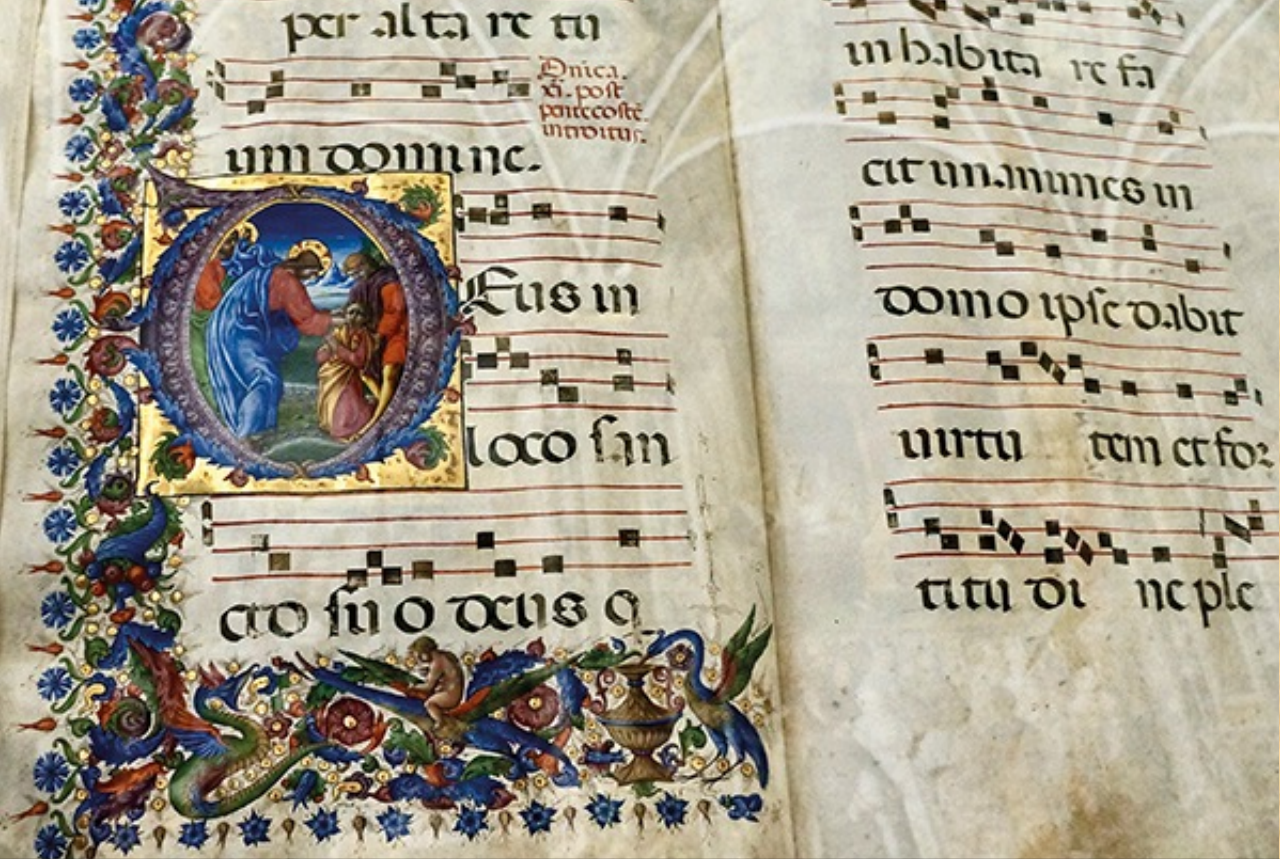 per alta re tu
Dnica.
xi. post
pentecostē
introitus.
um domine.
DEus in
loco san
cto su o deus q
inhabita re fa
cit unanimes in
domo ipse dabit
uirtu tem et for
titu di ne ple